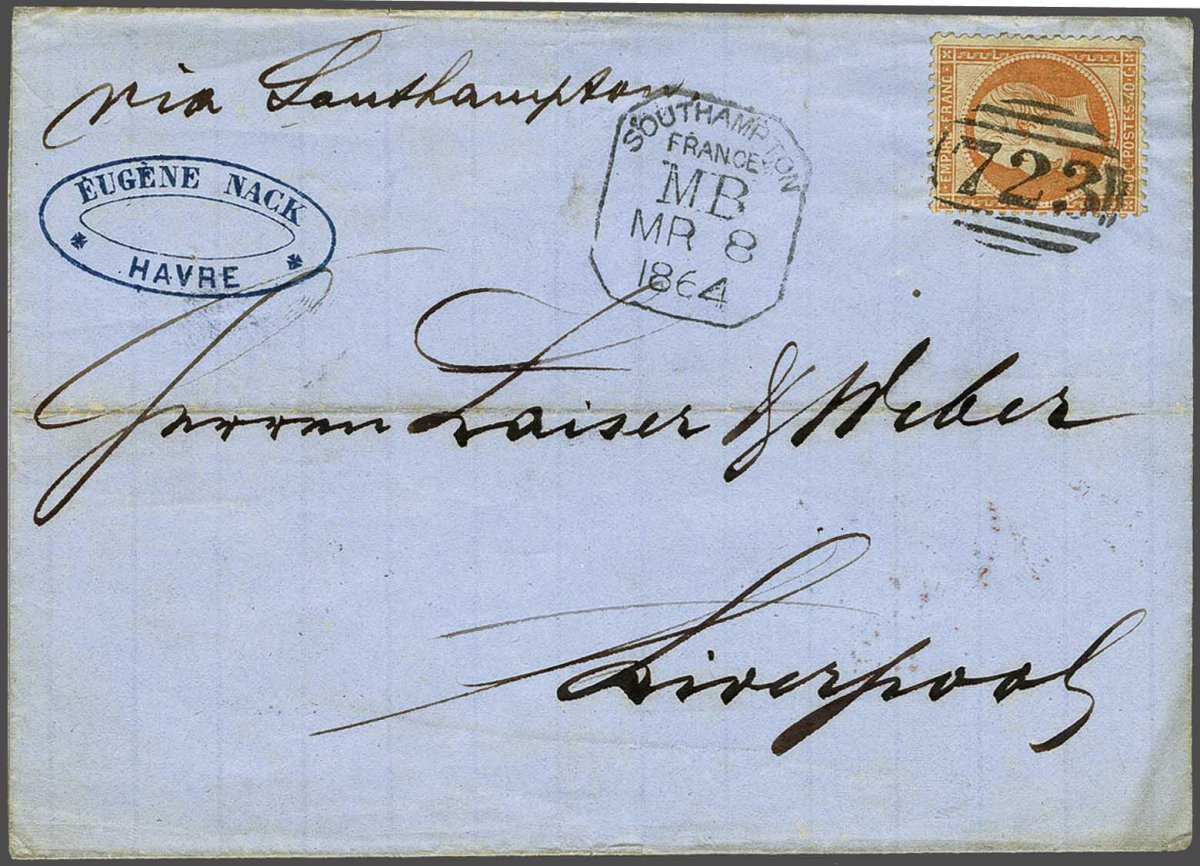 via Southampton.
EUGÈNE NACK
HAVRE
SOUTHAMPTON
FRANCE
MB
MR 8
1864
EMPIRE FRANC
POSTES 40 C
723
Herren Laiser & Weber
Liverpool